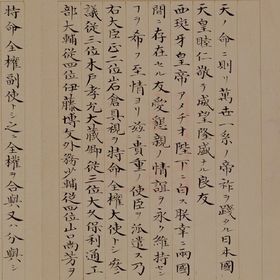 天ノ命ニ則リ萬世一系ノ帝祚ヲ踐タル日本國
天皇睦仁敬テ威望隆盛ナル良友
西班牙皇帝アメデオ陛下ニ白ス朕幸ニ兩國
間ニ存在セル友愛懇親ノ情誼ヲ永ク維持セン
フヲ希ヒ至情ヨリ玆ニ貴重ノ使臣ヲ派遣ス乃
右大臣正二位岩倉具視ヲ特命全權大使トシ參
議從三位木戸孝允大藏卿從三位大久保利通工
部大輔從四位伊藤博文外務少輔從四位山口尚芳ヲ
特命全權副使トシ之ニ全權ヲ合與又ハ分與シ